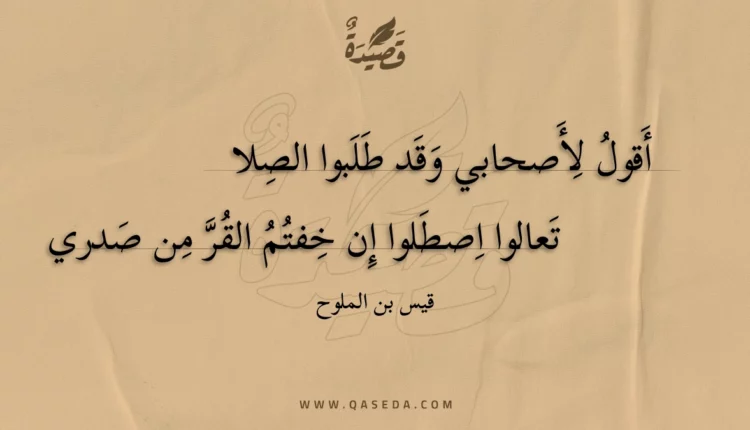 قَصِيدَةٌ
أَقولُ لِأَصحابي وَقَد طَلَبوا الصِلا
تَعالوا اِصطَلوا إِن خِفتُمُ القُرَّ مِن صَدري
قيس بن الملوح
WWW.QASEDA.COM